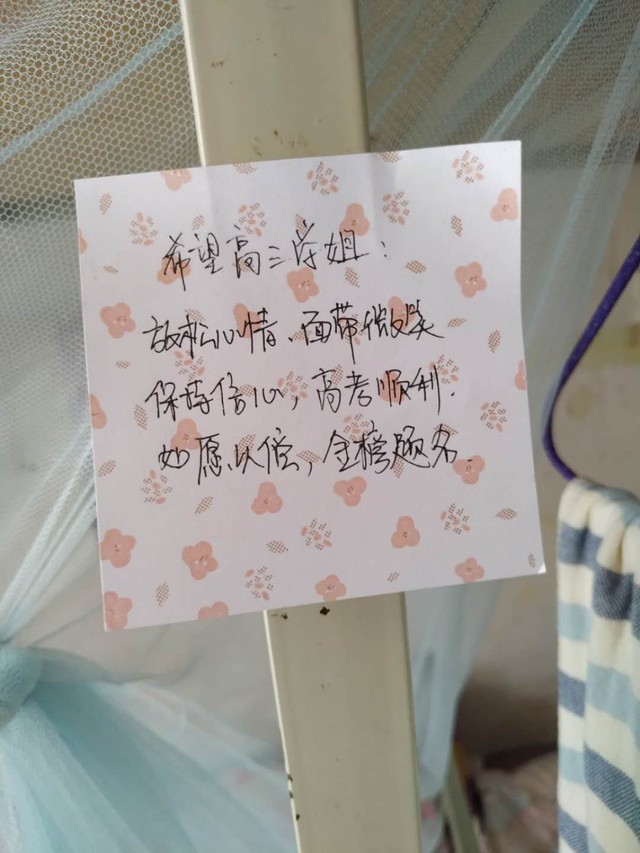 希望高三学姐：
放松心情、面带微笑
保持信心，高考顺利.
如愿以偿，金榜题名.